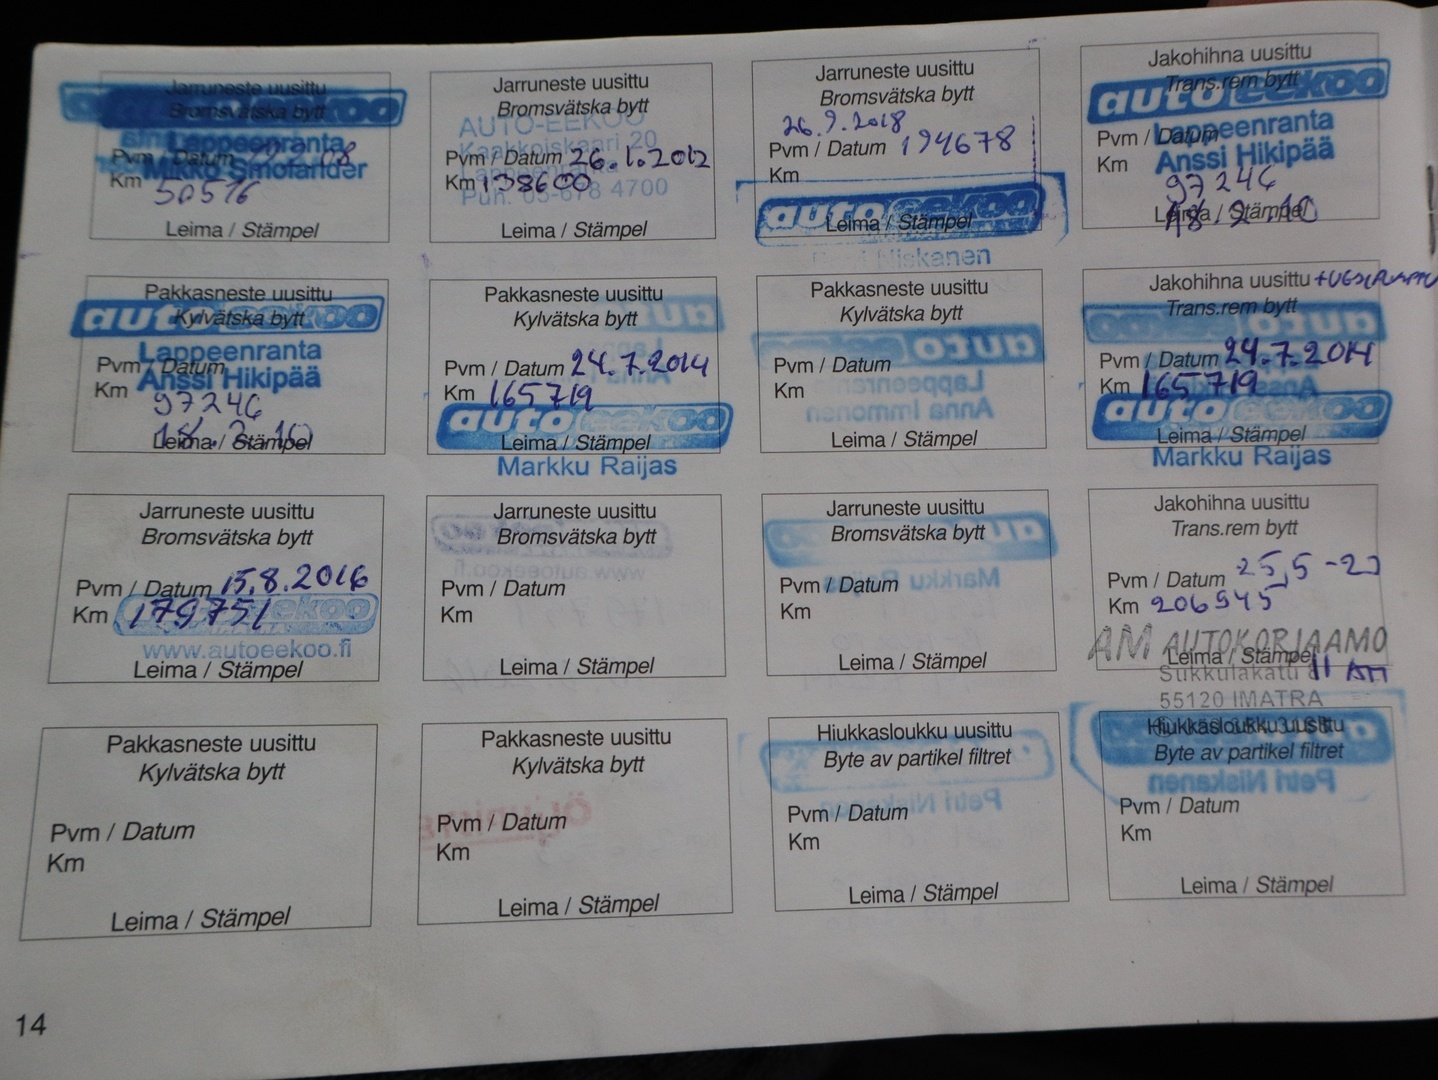 Jarruneste uusittu
Bromsvätska bytt
auto eekoo
Lappeenranta
Pvm / Datum
Mikko Smolander
Km 50516
Leima / Stämpel
Jarruneste uusittu
Bromsvätska bytt
AUTO-EEKOO
Kaakkoiskaari 20
Pvm / Datum 26.1.2012
Lappeenranta
Km 138600
Puh. 05-678 4700
Leima / Stämpel
Jarruneste uusittu
Bromsvätska bytt
26.9.2018
Pvm / Datum 194678
Km
auto eekoo
Leima / Stämpel
Niskanen
Jakohihna uusittu
Trans.rem bytt
auto eekoo
Lappeenranta
Pvm / Datum
Km
Anssi Hikipää
97246
18.2.10
Leima / Stämpel
Pakkasneste uusittu
Kylvätska bytt
auto eekoo
Lappeenranta
Pvm / Datum
Km
Anssi Hikipää
97246
18.2.10
Leima / Stämpel
Pakkasneste uusittu
Kylvätska bytt
Pvm / Datum 24.7.2014
Km 165719
auto eekoo
Leima / Stämpel
Markku Raijas
Pakkasneste uusittu
Kylvätska bytt
auto
Pvm / Datum
Lappeenranta
Km
Anna Immonen
Leima / Stämpel
Jakohihna uusittu +VESIPUMPPU
Trans.rem bytt
auto
Pvm / Datum 24.7.2014
Km 165719
auto eekoo
Leima / Stämpel
Markku Raijas
Jarruneste uusittu
Bromsvätska bytt
Pvm / Datum 15.8.2016
Km 179751
eekoo
www.autoeekoo.fi
Leima / Stämpel
Jarruneste uusittu
Bromsvätska bytt
www.autoeekoo.fi
Pvm / Datum
Km
Leima / Stämpel
Jarruneste uusittu
Bromsvätska bytt
auto
Pvm / Datum
Markku Raijas
Km
Leima / Stämpel
Jakohihna uusittu
Trans.rem bytt
Pvm / Datum 25,5-20
Km 206945
AM AUTOKORJAAMO
Leima / Stämpel
Sukkulakatu
55120 IMATRA
Pakkasneste uusittu
Kylvätska bytt
Pvm / Datum
Km
Leima / Stämpel
Pakkasneste uusittu
Kylvätska bytt
Pvm / Datum
Km
Leima / Stämpel
Hiukkasloukku uusittu
Byte av partikel filtret
Petri Niskanen
Pvm / Datum
Km
Leima / Stämpel
Hiukkasloukku uusittu
Byte av partikel filtret
Petri Niskanen
Pvm / Datum
Km
Leima / Stämpel
14